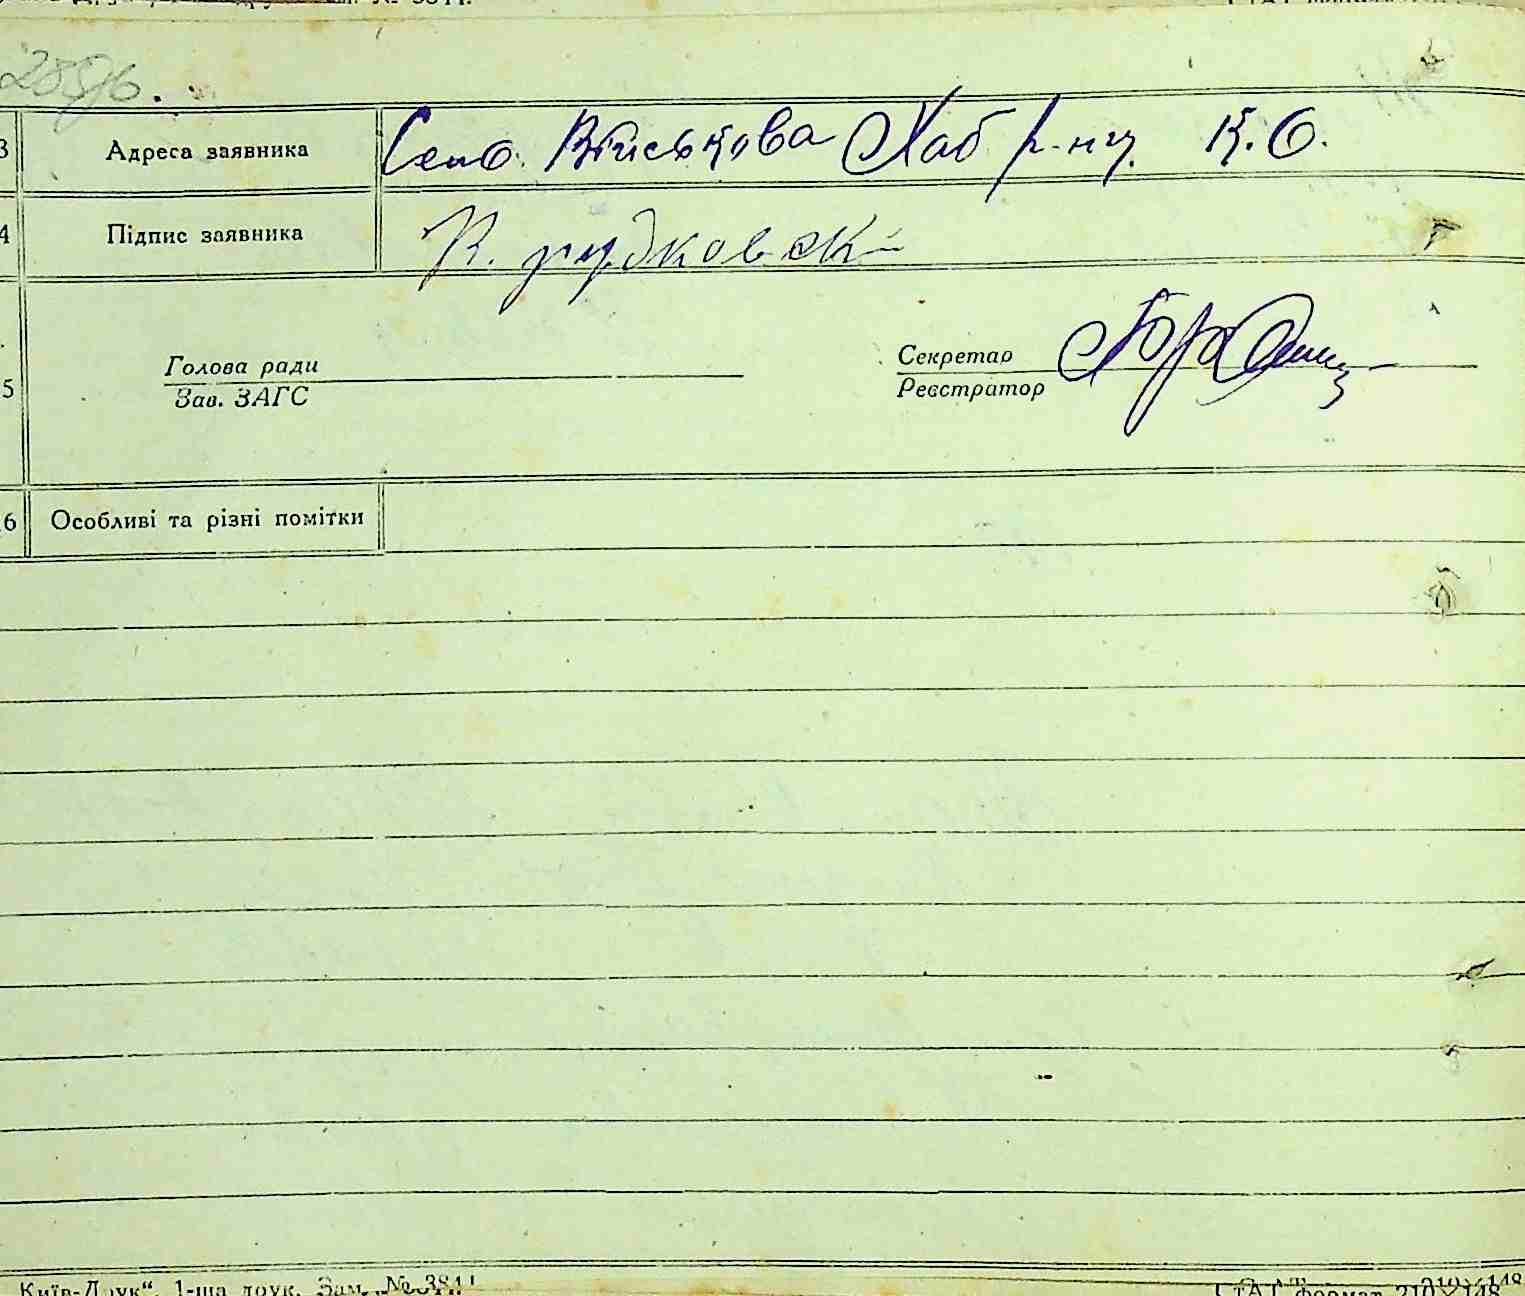 3 Адреса заявника Село. Військова Хаб р-ну. К.О.
4 Підпис заявника К. рудковскі
Голова ради Секретар
5 Зав. ЗАГС Реєстратор
6 Особливі та різні помітки
Київ-Друк“, 1-ша друк. Зам. №3841
СтАТ формат 210×148